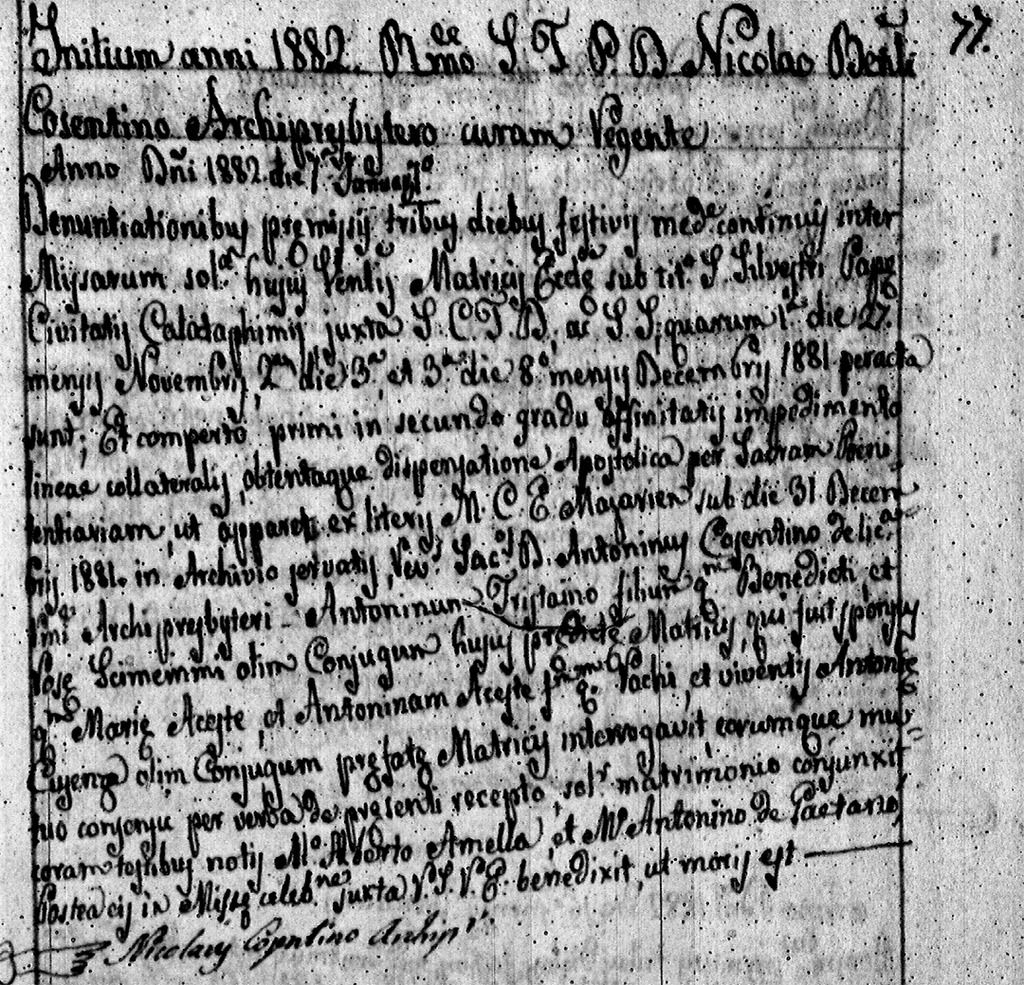 77.
Initium anni 1882. Rmo S T P. D Nicolao Benti
Cosentino Archipresbytero curam Regente
Anno Dñi 1882 die 7ª Januarij
Denuntiationibus premissis tribus diebus festivis mede continuis inter
Missarum sol.ª hujus Ventis Matricis Eccle sub tit.º S. Silvestri Pape
Civitatis Calataphimis juxta S. C. T. D, ac S. S, quarum 1ª die 27.
mensis Novembris, 2ª die 3ª et 3ª die 8ª mensis Decembris 1881 peracta
sunt; Et comperto primi in secundo gradu affinitatis impedimento
lineae collateralis, obtentaque dispensatione Apostolica per Sacram Peni
tentiariam, ut apparet ex literis M. C. E. Mazarien sub die 31 Decem
bris 1881. in Archivio servatis, Revs Sacs D. Antoninus Cosentino de lic.ª
Archipresbyteri - Antoninum Tristaino filium qm Benedicti, et
Rose Scimemmi olim Conjugum hujus predicte Matricis, qui fuit sponsus
qm Marie Aceste, et Antoninam Aceste qm Pachi, et viventis Antonie
olim Conjugum prefate Matricis interrogavit, eorumque mu=
tuo consensu per verba de presenti recepto, solr matrimonio conjunxit
coram testibus notis Mº Alberto Amella, et Mº Antonino de Gaetano,
Postea eis in Misse celebne juxta R. S. V. E. benedixit, ut moris est
Nicolaus Cosentino Archipr